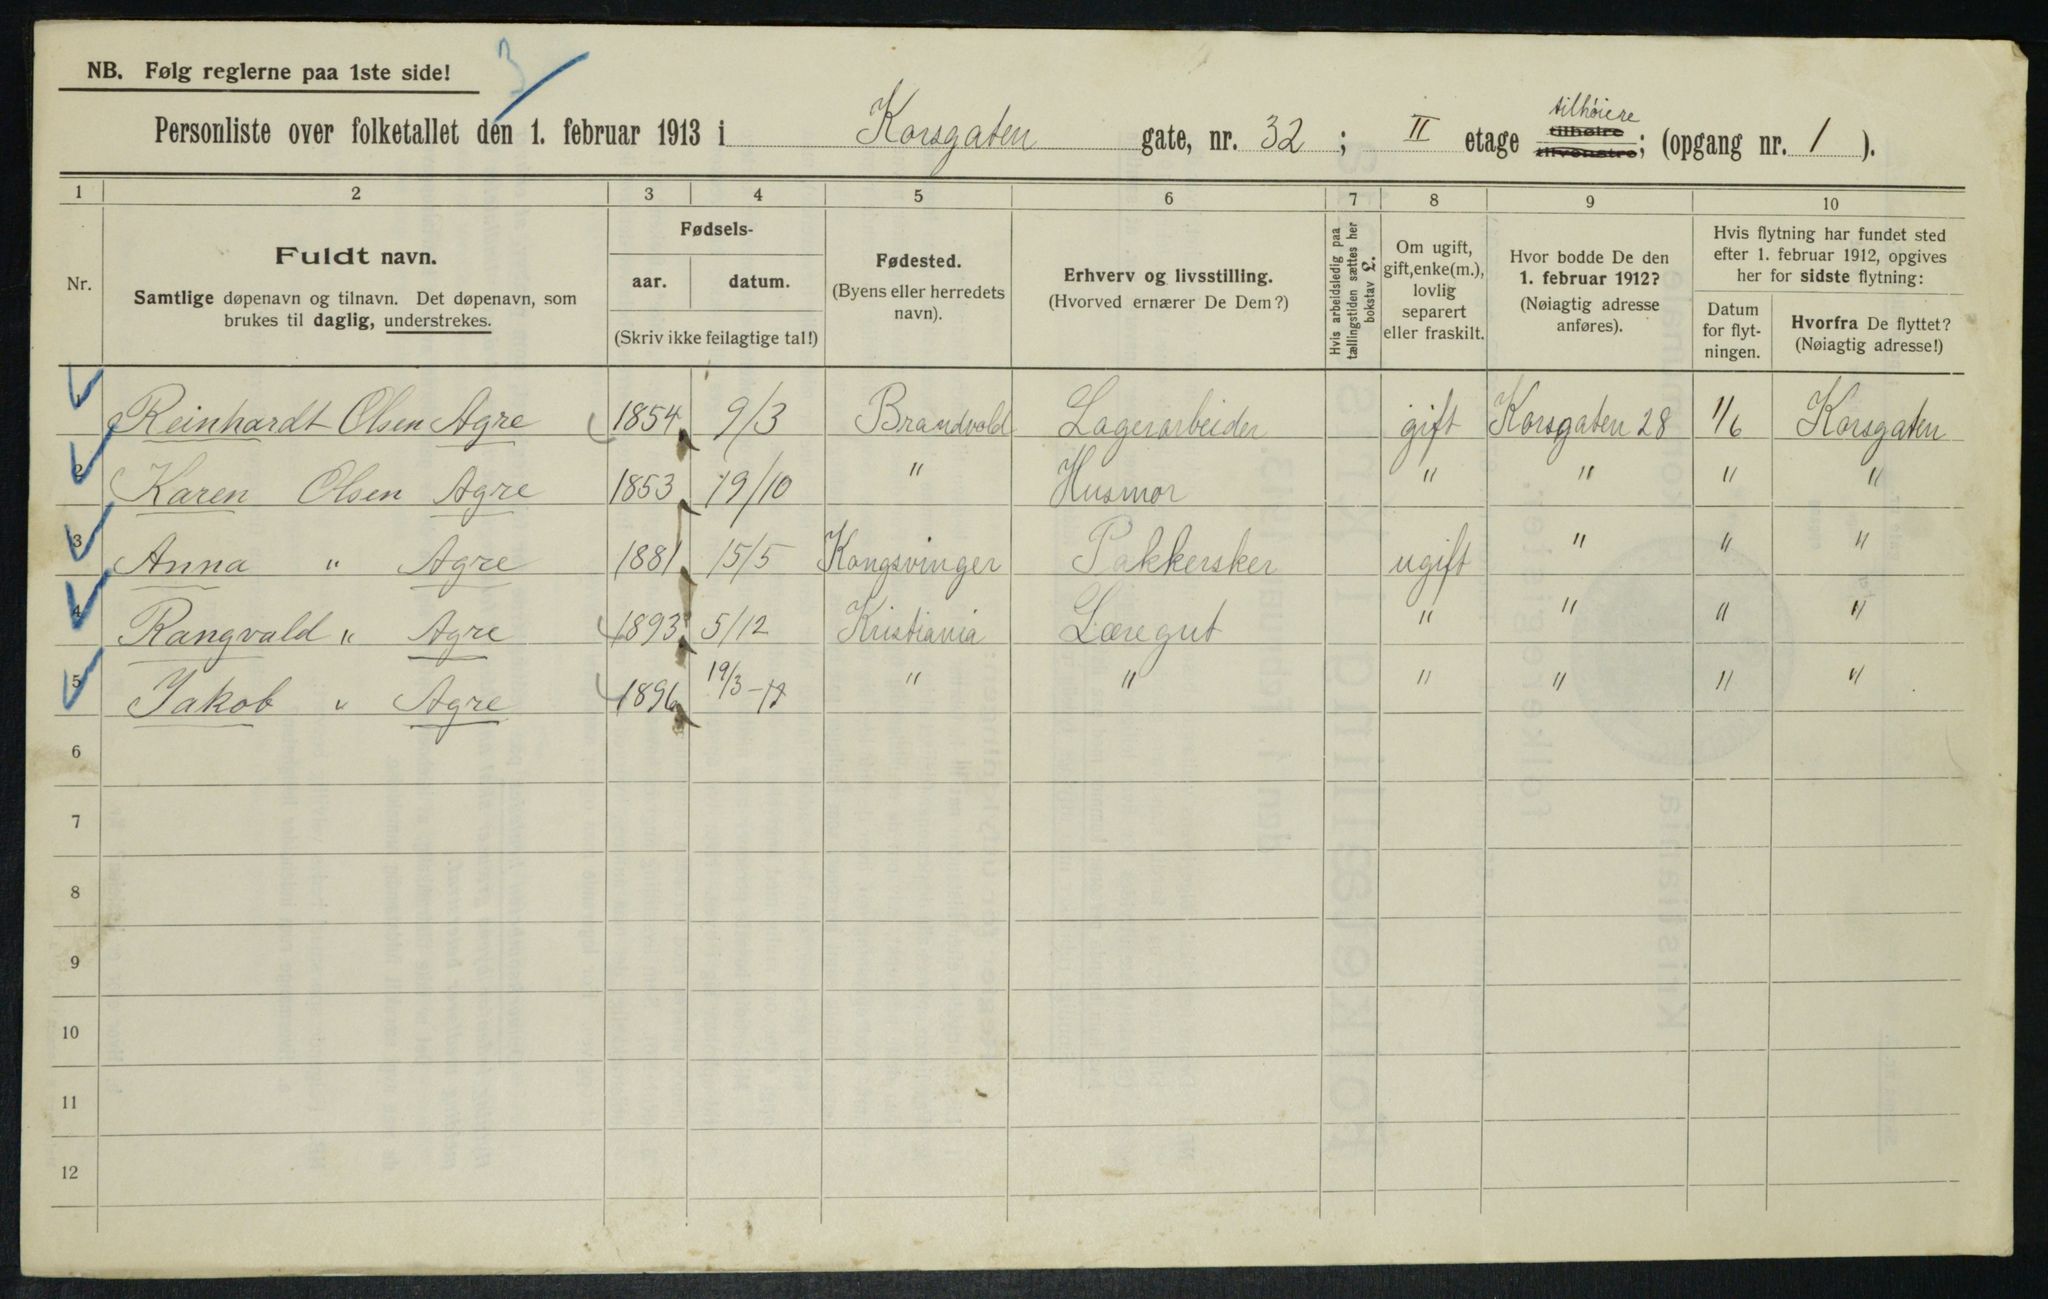 NB. Følg reglerne paa 1ste side!
3
Personliste over folketallet den 1. februar 1913 i Korsgaten gate, nr. 32 ; II etage tilhøire tilhøire tilvenstre; (opgang nr. 1 ).
1 2 3 4 5 6 7 8 9 10
Nr.
Fuldt navn.
Samtlige døpenavn og tilnavn. Det døpenavn, som
brukes til daglig, understrekes.
Fødsels-
aar. datum.
(Skriv ikke feilagtige tal!)
Fødested.
(Byens eller herredets
navn).
Erhverv og livsstilling.
(Hvorved ernærer De Dem?)
Hvis arbeidsledig paa
tællingstiden sættes her
bokstav L.
Om ugift,
gift, enke(m.),
lovlig
separert
eller fraskilt.
Hvor bodde De den
1. februar 1912?
(Nøiagtig adresse
anføres).
Hvis flytning har fundet sted
efter 1. februar 1912, opgives
her for sidste flytning:
Datum
for flyt-
ningen.
Hvorfra De flyttet?
(Nøiagtig adresse!)
1 Reinhardt Olsen Agre 1854 9/3 Brandvold Lagerarbeider gift Korsgaten 28 1/6 Korsgaten
2 Karen Olsen Agre 1853 19/10 " Husmor " " " "
3 Anna " Agre 1881 15/5 Kongsvinger Pakkersker ugift " " "
4 Rangvald " Agre 1893 5/12 Kristiania Læregut " " " "
5 Jakob " Agre 1896 19/3 " " " " " "
6
7
8
9
10
11
12